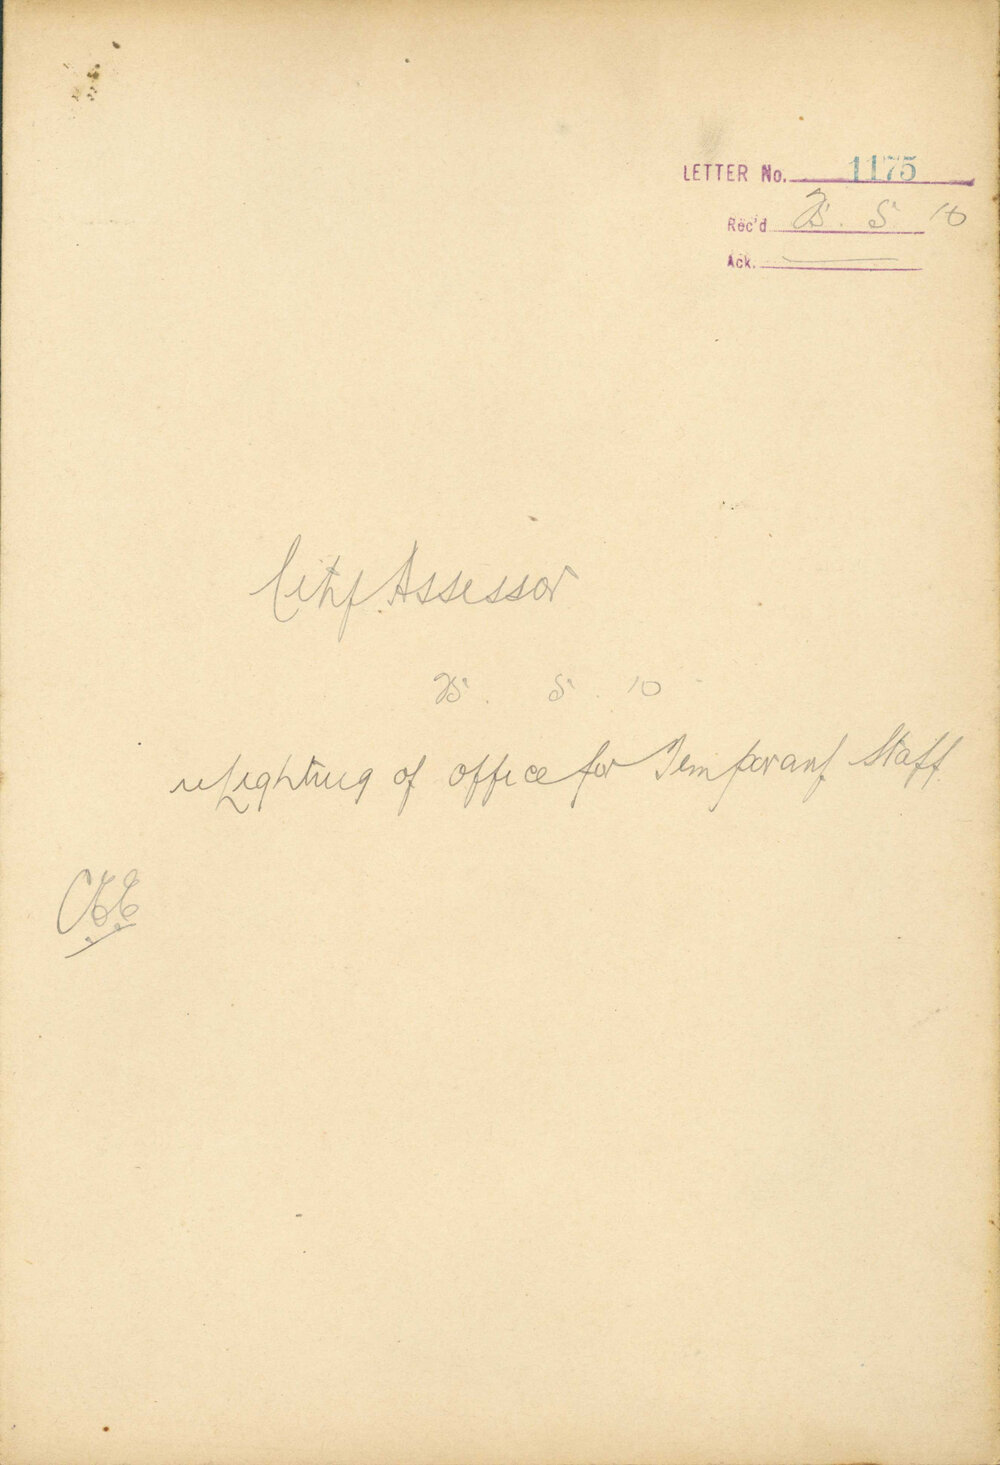 LETTER No. 1175
Rec'd 25. 5. 10
Ack.
City Assessor
25. 5. 10
re Lighting of office for Temporary Staff